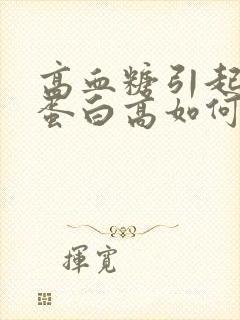 高血糖引起
蛋白高如何
揮寬